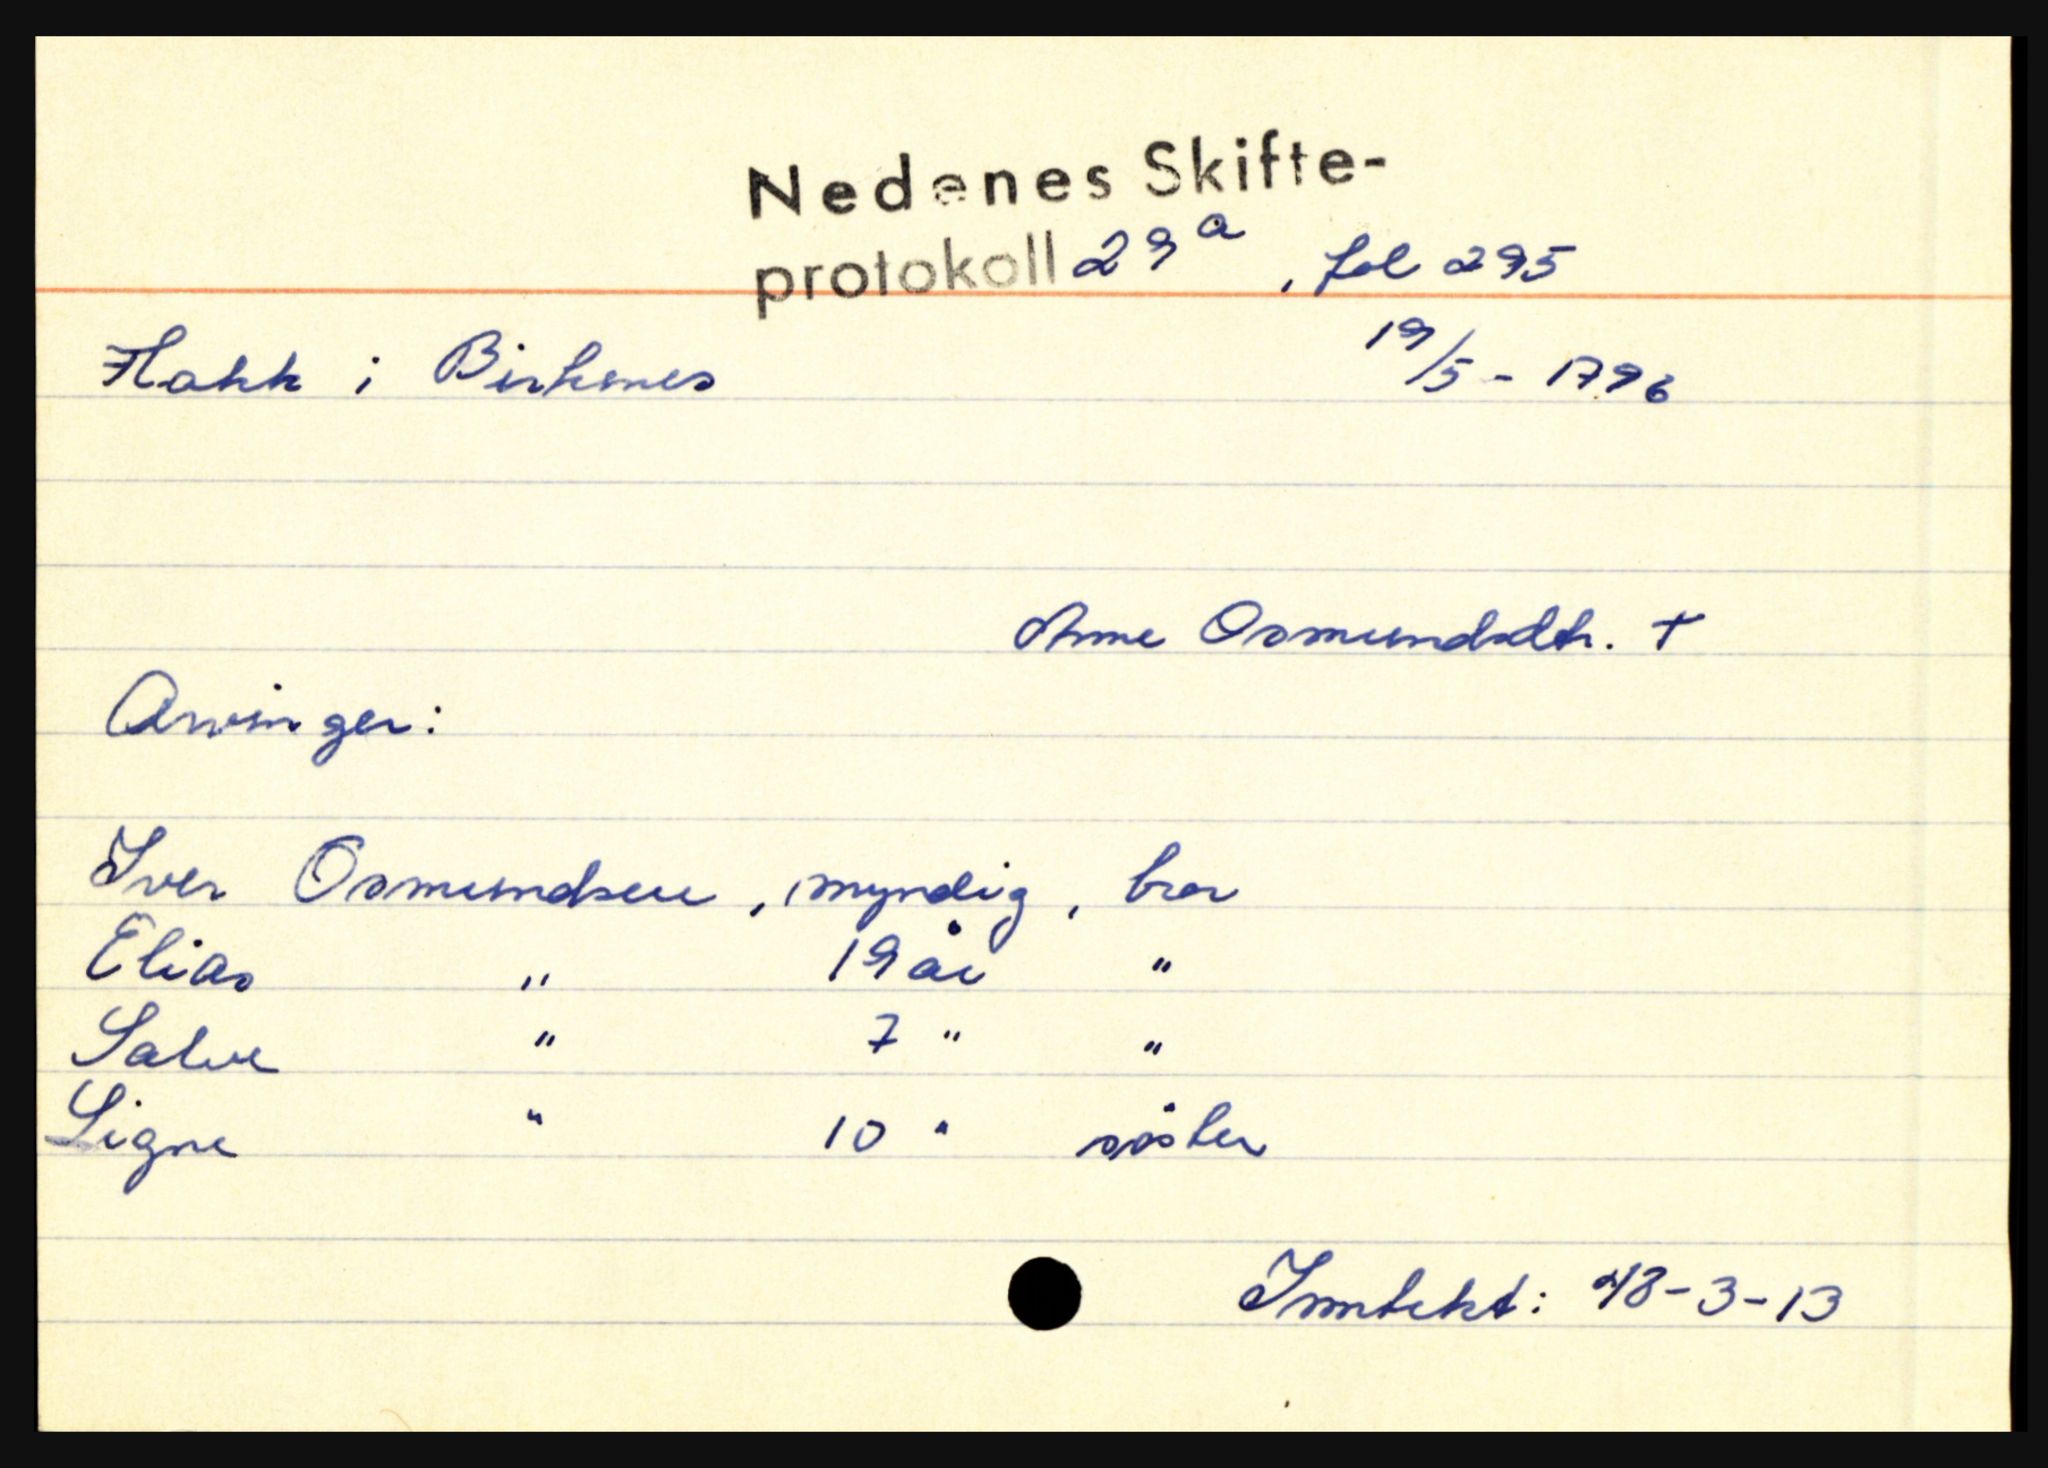 Nedenes Skifte-
protokoll 29 a, fol 295
Flakk i Birkenes 19/5 - 1796
Anne Osmundsdtr. +
Arvinger:
Iver Osmundsen, myndig, bror
Elias " 19 år "
Salve " 7 " "
Signe " 10 " söster
Inntekt: 48-3-13